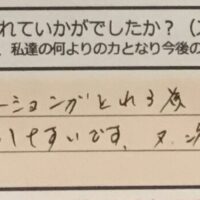 れていかがでしたか？（
、私達の何よりの力となり今後の
ーションがとれる為
しやすいです。又、